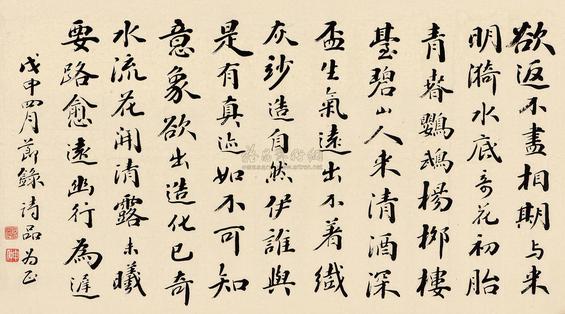 欲返不盡相期与来
明漪水底奇花初胎
青春鸚鵡楊柳樓
臺碧山人来清酒深
盃生氣遠出不着死
灰妙造自然伊誰與
是有真迹如不可知
意象欲出造化已奇
水流花開清露未曦
要路愈遠幽行為遲
戊申四月節錄詩品為正